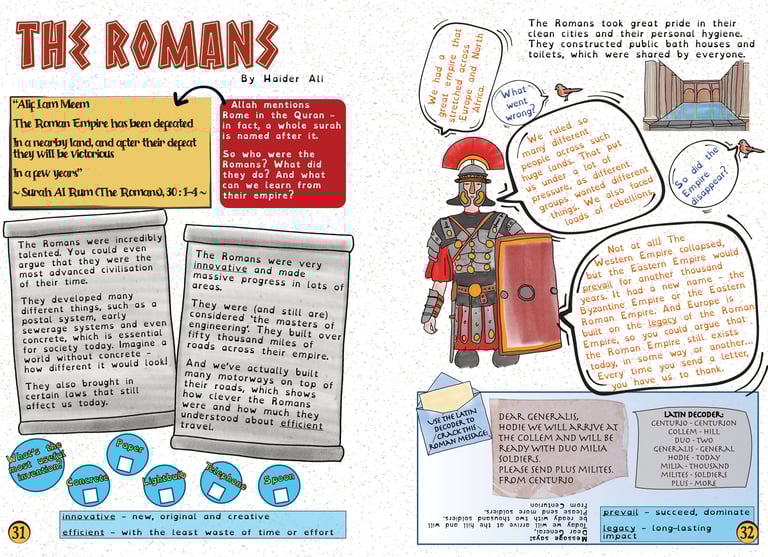 THE ROMANS
By Haider Ali
"Alif Lam Meem
The Roman Empire has been defeated
In a nearby land, and after their defeat
they will be victorious
In a few years"
~ Surah Al Rum (The Romans), 30 : 1-4 ~
Allah mentions
Rome in the Quran –
in fact, a whole surah
is named after it.
So who were the
Romans? What did
they do? And what
can we learn from
their empire?
The Romans were incredibly
talented. You could even
argue that they were the
most advanced civilisation
of their time.
They developed many
different things, such as a
postal system, early
sewerage systems and even
concrete, which is essential
for society today. Imagine a
world without concrete –
how different it would look!
They also brought in
certain laws that still
affect us today.
The Romans were very
innovative and made
massive progress in lots of
areas.
They were (and still are)
considered 'the masters of
engineering'. They built over
fifty thousand miles of
roads across their empire.
And we've actually built
many motorways on top of
their roads, which shows
how clever the Romans
were and how much they
understood about efficient
travel.
What's the
most useful
invention?
Concrete
Paper
Lightbulb
Telephone
Spoon
innovative – new, original and creative
efficient – with the least waste of time or effort
31
The Romans took great pride in their
clean cities and their personal hygiene.
They constructed public bath houses and
toilets, which were shared by everyone.
We had a
great empire that
stretched across
Europe and North
Africa.
What
went
wrong?
We ruled so
many different
people across such
huge lands. That put
us under a lot of
pressure, as different
groups wanted different
things. We also faced
loads of rebellions.
So did the
Empire
disappear?
Not at all! The
Western Empire collapsed,
but the Eastern Empire would
prevail for another thousand
years. It had a new name – the
Byzantine Empire or the Eastern
Roman Empire. And Europe is
built on the legacy of the Roman
Empire, so you could argue that
the Roman Empire still exists
today, in some way or another...
Every time you send a letter,
you have us to thank.
USE THE LATIN
DECODER TO
CRACK THIS
ROMAN MESSAGE!
DEAR GENERALIS,
HODIE WE WILL ARRIVE AT
THE COLLEM AND WILL BE
READY WITH DUO MILIA
SOLDIERS.
PLEASE SEND PLUS MILITES.
FROM CENTURIO
LATIN DECODER:
CENTURIO - CENTURION
COLLEM - HILL
DUO - TWO
GENERALIS - GENERAL
HODIE - TODAY
MILIA - THOUSAND
MILITES - SOLDIERS
PLUS - MORE
Message says:
Dear General,
Today we will arrive at the hill and will
be ready with two thousand soldiers.
Please send more soldiers.
From Centurion
prevail – succeed, dominate
legacy – long-lasting
impact
32